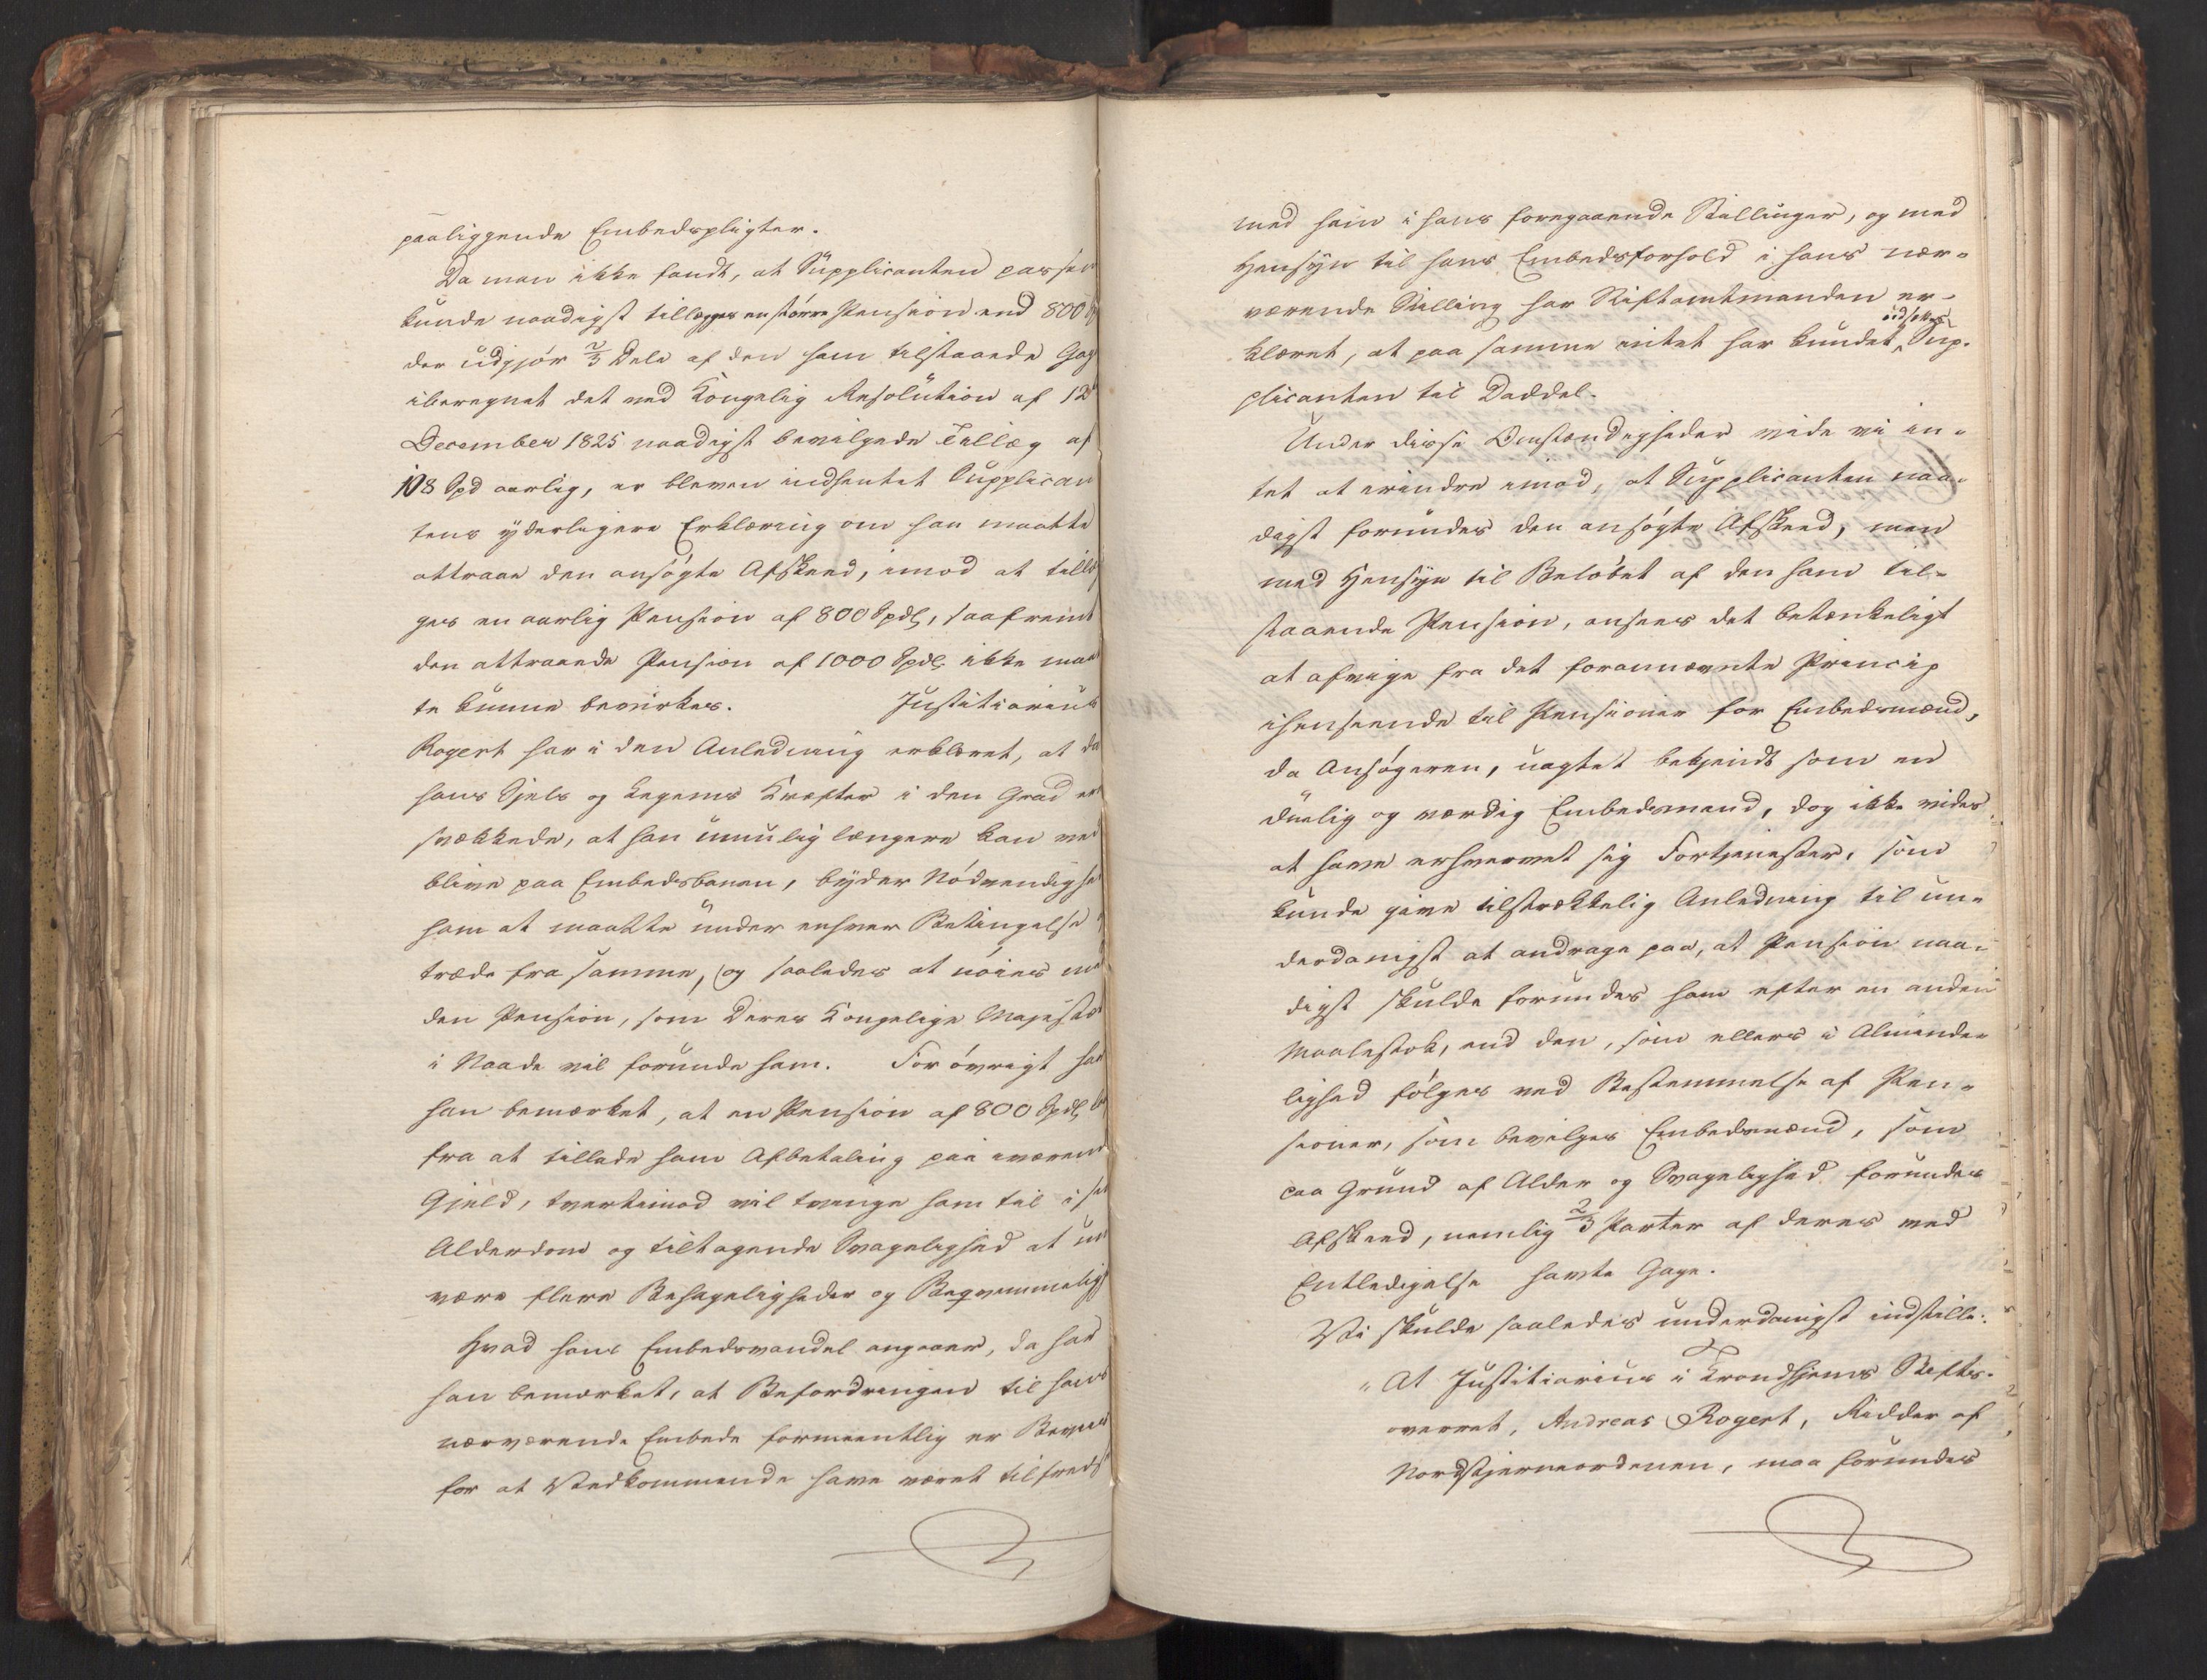 paaliggende Embedspligter.
Da man ikke fandt, at Supplicanten passen
kunde naadigst tillægges en större Pension end 800
der udgjör 2/3 Dele af den ham tilstaaede Gag
iberegnet det ved Kongelig Resolution af 12
December 1825 naadigst bevilgede Tillæg af
108 Spd aarlig, er bleven indhentet Supplican
tens yderligere Erklæring om han maatte
attraae den ansögte Afskeed, imod at tillæg
ges en aarlig Pension af 800 Spdlr, saafremt
den attraaede Pension af 1000 Spdlr ikke maat
te kunne bevirkes. Justitiarius
Rogert har i den Anledning erklæret, at da
hans Sjels og Legems Kræfter i den Grad er
svækkede, at han umulig længere kan ved
blive paa Embedsbanen, byder Nödvendighe
ham at maatte under enhver Betingelse
træde fra samme, og saaledes at nöies med
den Pension, som Deres Kongelige Majestæt
i Naade vil forunde ham. For övrigt har
han bemærket, at en Pension af 800 Spdlr
fra at tillade ham Afbetaling paa værende
Gjeld, tvertimod vil tvinge ham til i sin
Alderdom og tiltagende Svagelighed at und
være flere Behageligheder og Beqvemmelig
Hvad hans Embedsvandel angaaer, da har
han bemærket, at Befordringen til hans
nærværende Embede formeentlig er Beviis
for at Vedkommende have været tilfreds
med ham i hans foregaaende Stillinger, og med
Hensyn til hans Embedsforhold i hans nær-
værende Stilling har Stiftamtmanden er-
klæret, at paa samme intet har kundet udsættes Sup-
plicanten til Daddel.
Under disse Omstændigheder vide vi in-
tet at erindre imod, at Supplicanten naa-
digst forundes den ansögte Afskeed, men
med Hensyn til Belöbet af den ham til-
staaende Pension, ansees det betænkeligt
at afvige fra det forannævnte Princip
ihenseende til Pensioner for Embedsmænd,
da Ansögeren, uagtet bekjendt som en
duelig og værdig Embedsmand, dog ikke vides
at have erhvervet sig Fortjenester, som
kunde give tilstrækkelig Anledning til un-
derdanigst at andrage paa, at Pension naa-
digst skulde forundes ham efter en anden
Maalestok, end den, som ellers i Alminde-
lighed fölges ved Bestemmelse af Pen-
sioner, som bevilges Embedsmænd, som
paa Grund af Alder og Svagelighed forundes
Afskeed, nemlig 2/3 Parter af deres ved
Entledigelse havte Gage.
Vi skulde saaledes underdanigst indstille:
"At Justitiarius i Trondhjems Stifts-
overret, Andreas Rogert, Ridder af
Nordstjerneordenen, maa forundes